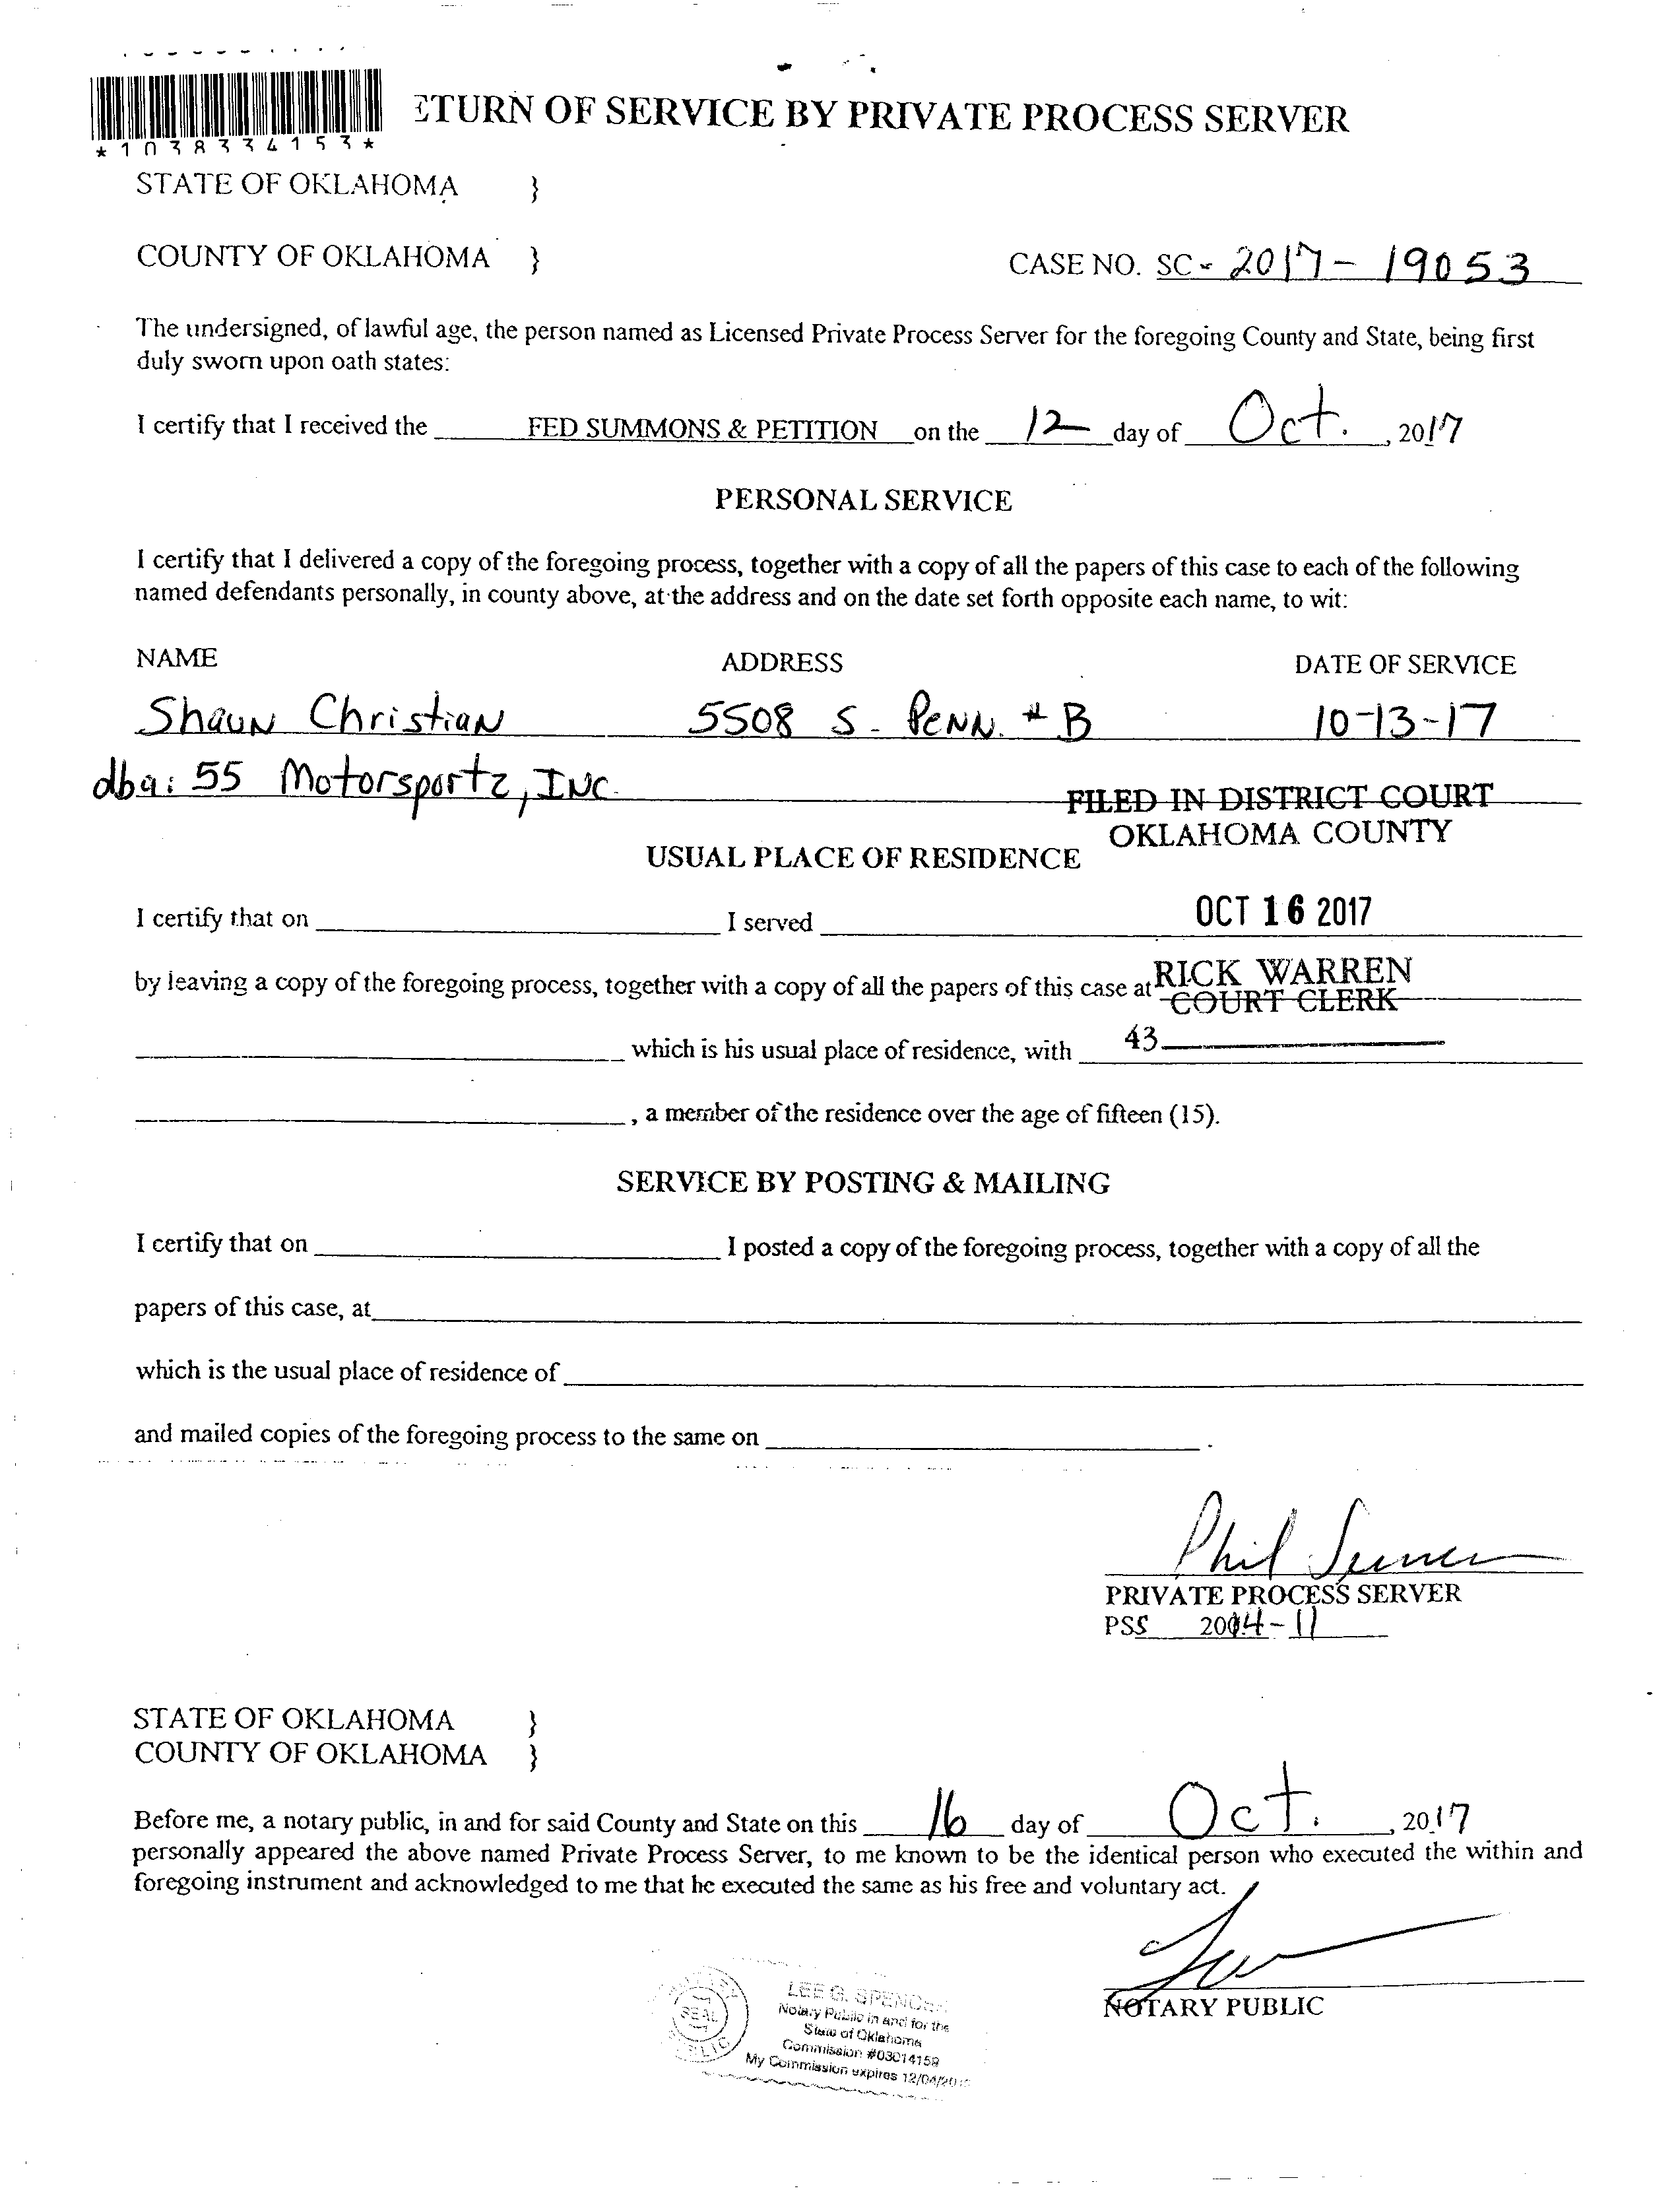 ETURN OF SERVICE BY PRIVATE PROCESS SERVER
*1038334153*
STATE OF OKLAHOMA }
COUNTY OF OKLAHOMA } CASE NO. SC - 2017 - 19053
The undersigned, of lawful age, the person named as Licensed Private Process Server for the foregoing County and State, being first
duly sworn upon oath states:
I certify that I received the FED SUMMONS & PETITION on the 12 day of Oct. , 2017
PERSONAL SERVICE
I certify that I delivered a copy of the foregoing process, together with a copy of all the papers of this case to each of the following
named defendants personally, in county above, at the address and on the date set forth opposite each name, to wit:
NAME ADDRESS DATE OF SERVICE
Shaun Christian 5508 S. Penn. # B 10-13-17
dba: 55 Motorsportz, Inc.
FILED IN DISTRICT COURT
OKLAHOMA COUNTY
USUAL PLACE OF RESIDENCE
OCT 16 2017
I certify that on I served
by leaving a copy of the foregoing process, together with a copy of all the papers of this case at RICK WARREN
COURT CLERK
which is his usual place of residence, with 43
, a member of the residence over the age of fifteen (15).
SERVICE BY POSTING & MAILING
I certify that on I posted a copy of the foregoing process, together with a copy of all the
papers of this case, at
which is the usual place of residence of
and mailed copies of the foregoing process to the same on .
Phil
PRIVATE PROCESS SERVER
PSS 2004-11
STATE OF OKLAHOMA }
COUNTY OF OKLAHOMA }
Before me, a notary public, in and for said County and State on this 16 day of Oct. , 2017
personally appeared the above named Private Process Server, to me known to be the identical person who executed the within and
foregoing instrument and acknowledged to me that he executed the same as his free and voluntary act.
NOTARY PUBLIC
SEAL
LEE G. SPENCER
Notary Public in and for the
State of Oklahoma
Commission #03014159
My Commission expires 12/04/20